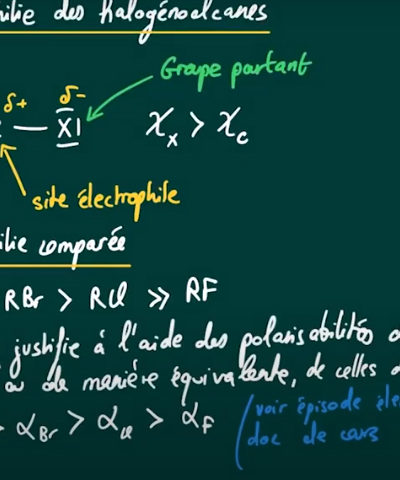 des halogénoalcanes
Groupe partant
δ+ δ-
— X| χx > χc
site électrophile
comparée
RBr > RCl >> RF
justifie à l'aide des polarisabilités
ou de manière équivalente, de celles
> αBr > αCl > αF (voir épisode
doc de cours